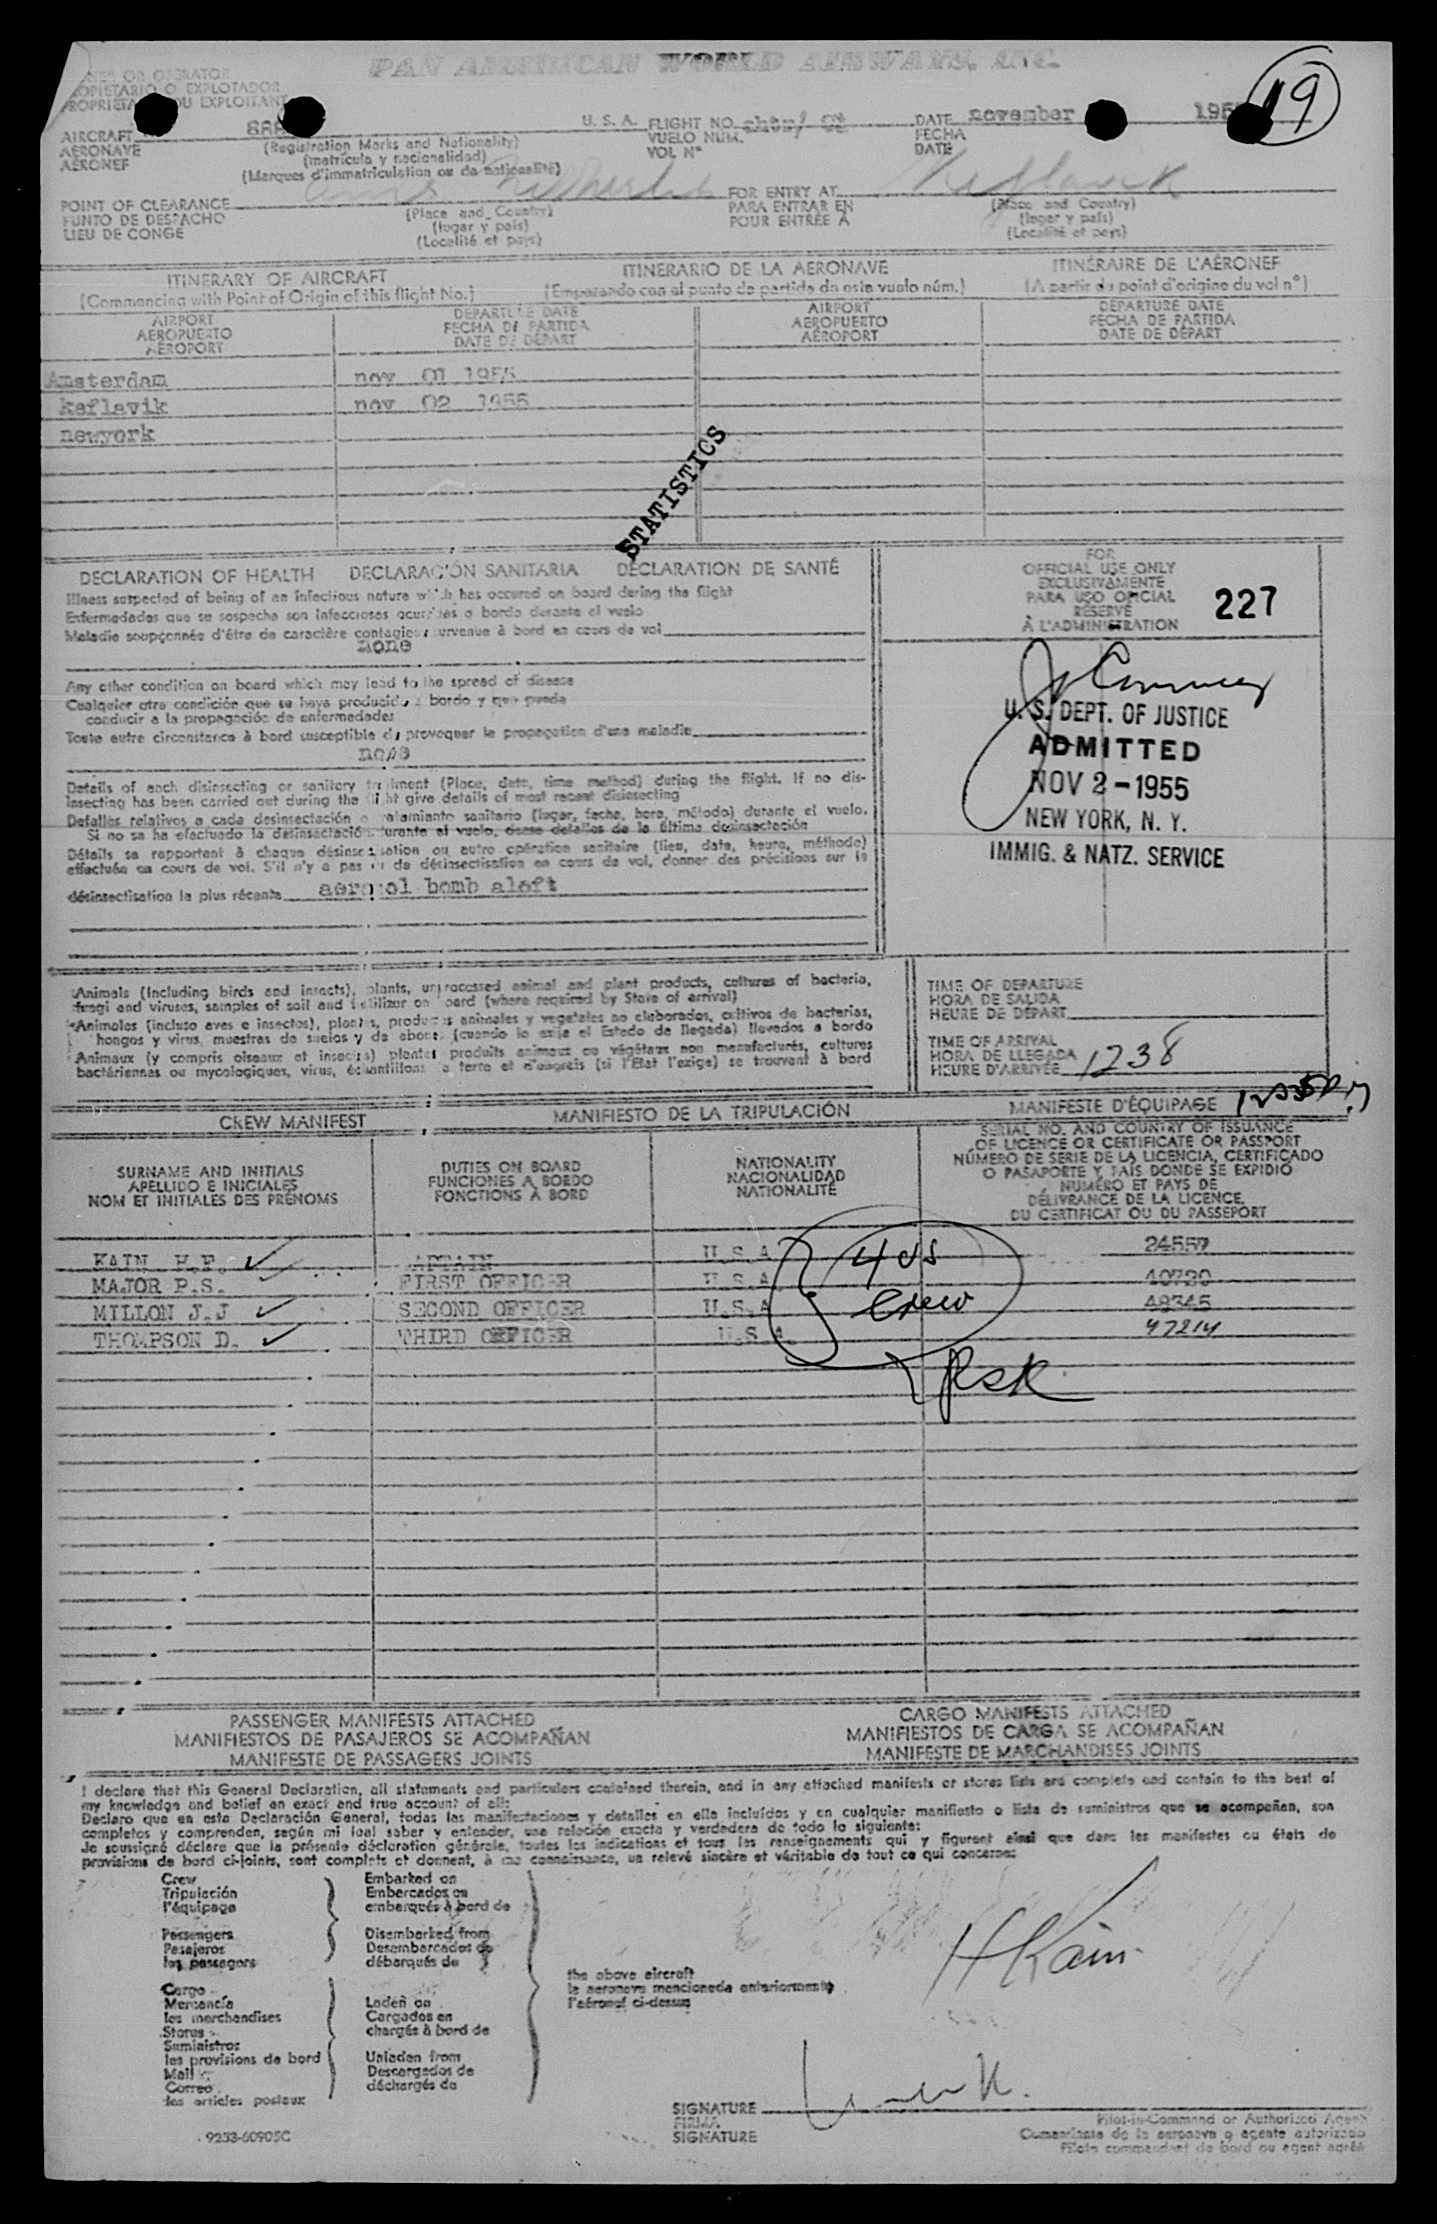 PAN AMERICAN WORLD AIRWAYS, INC.
OR OPERATOR
O EXPLOTADOR
OU EXPLOITANT
19
AIRCRAFT
AERONAVE
AÉRONEF
(Registration Marks and Nationality)
(matrícula y nacionalidad)
(Marques d'immatriculation ou de nationalité)
U. S. A.
FLIGHT NO.
VUELO NUM.
VOL N°
DATE november
FECHA
DATE
POINT OF CLEARANCE
PUNTO DE DESPACHO
LIEU DE CONGÉ
(Place and Country)
(lugar y país)
(Localité et pays)
FOR ENTRY AT Keflavik
PARA ENTRAR EN
POUR ENTRÉE À
(Place and Country)
(lugar y país)
(Localité et pays)
ITINERARY OF AIRCRAFT ITINERARIO DE LA AERONAVE ITINÉRAIRE DE L'AÉRONEF
(Commencing with Point of Origin of this flight No.) (Empezando con el punto de partida de este vuelo núm.) (A partir du point d'origine du vol n°)
AIRPORT DEPARTURE DATE AIRPORT DEPARTURE DATE
AEROPUERTO FECHA DE PARTIDA AEROPUERTO FECHA DE PARTIDA
AÉROPORT DATE DE DÉPART AÉROPORT DATE DE DÉPART
Amsterdam nov 01 1955
keflavik nov 02 1955
newyork
STATISTICS
DECLARATION OF HEALTH DECLARACIÓN SANITARIA DÉCLARATION DE SANTÉ
Illness suspected of being of an infectious nature which has occured on board during the flight
Enfermedades que se sospecha son infecciosas ocurridas a bordo durante el vuelo
Maladie soupçonnée d'être de caractère contagieux survenue à bord en cours de vol
none
Any other condition on board which may lead to the spread of disease
Cualquier otra condición que se haya producido a bordo y que pueda
conducir a la propagación de enfermedades
Toute autre circonstance à bord susceptible de provoquer la propagation d'une maladie
none
Details of each disinsecting or sanitary treatment (Place, date, time method) during the flight. If no dis-
insecting has been carried out during the flight give details of most recent disinsecting
Detalles relativos a cada desinsectación o tratamiento sanitario (lugar, fecha, hora, método) durante el vuelo.
Si no se ha efectuado la desinsectación durante el vuelo, dense detalles de la última desinsectación
Détails se rapportant à chaque désinsectisation ou autre opération sanitaire (lieu, date, heure, méthode)
effectuée en cours de vol. S'il n'y a pas eu de désinsectisation en cours de vol, donner des précisions sur la
désinsectisation la plus récente aerosol bomb aloft
FOR
OFFICIAL USE ONLY
EXCLUSIVAMENTE
PARA USO OFICIAL
RÉSERVÉ
À L'ADMINISTRATION
227
U. S. DEPT. OF JUSTICE
ADMITTED
NOV 2 - 1955
NEW YORK, N. Y.
IMMIG. & NATZ. SERVICE
*Animals (Including birds and insects), plants, unprocessed animal and plant products, cultures of bacteria,
fungi and viruses, samples of soil and fertilizer on board (where required by State of arrival)
*Animales (incluso aves e insectos), plantas, productos animales y vegetales no elaborados, cultivos de bacterias,
hongos y virus, muestras de suelos y de abono (cuando lo exija el Estado de llegada) llevados a bordo
*Animaux (y compris oiseaux et insectes) plantes produits animaux ou végétaux non manufacturés, cultures
bactériennes ou mycologiques, virus, échantillons de terre et d'engrais (si l'État l'exige) se trouvant à bord
TIME OF DEPARTURE
HORA DE SALIDA
HEURE DE DÉPART
TIME OF ARRIVAL
HORA DE LLEGADA
HEURE D'ARRIVÉE 1238
CREW MANIFEST MANIFIESTO DE LA TRIPULACIÓN MANIFESTE D'ÉQUIPAGE
SURNAME AND INITIALS
APELLIDO E INICIALES
NOM ET INITIALES DES PRÉNOMS
DUTIES ON BOARD
FUNCIONES A BORDO
FONCTIONS À BORD
NATIONALITY
NACIONALIDAD
NATIONALITÉ
SERIAL NO. AND COUNTRY OF ISSUANCE
OF LICENCE OR CERTIFICATE OR PASSPORT
NÚMERO DE SERIE DE LA LICENCIA, CERTIFICADO
O PASAPORTE Y PAÍS DONDE SE EXPIDIÓ
NUMÉRO ET PAYS DE
DÉLIVRANCE DE LA LICENCE,
DU CERTIFICAT OU DU PASSEPORT
KAIN H.F. CAPTAIN U.S.A. 24557
MAJOR P.S. FIRST OFFICER U.S.A.
MILLON J.J SECOND OFFICER U.S.A 48345
THOMPSON D. THIRD OFFICER U.S A. 47214
4 US
crew
PASSENGER MANIFESTS ATTACHED
MANIFIESTOS DE PASAJEROS SE ACOMPAÑAN
MANIFESTE DE PASSAGERS JOINTS
CARGO MANIFESTS ATTACHED
MANIFIESTOS DE CARGA SE ACOMPAÑAN
MANIFESTE DE MARCHANDISES JOINTS
I declare that this General Declaration, all statements and particulars contained therein, and in any attached manifests or stores lists are complete and contain to the best of
my knowledge and belief an exact and true account of all:
Declaro que en esta Declaración General, todas las manifestaciones y detalles en ella incluídos y en cualquier manifiesto o lista de suministros que se acompañan, son
completos y comprenden, según mi leal saber y entender, una relación exacta y verdadera de todo lo siguiente:
Je soussigné déclare que la présente déclaration générale, toutes les indications et tous les renseignements qui y figurent ainsi que dans les manifestes ou états de
provisions de bord ci-joints, sont complets et donnent, à ma connaissance, un relevé sincère et véritable de tout ce qui concerne:
Crew
Tripulación
l'équipage
Passengers
Pasajeros
les passagers
Cargo
Mercancía
les marchandises
Stores
Suministros
les provisions de bord
Mail
Correo
les articles postaux
Embarked on
Embarcados en
embarqués à bord de
Disembarked from
Desembarcados de
débarqués de
Laden on
Cargados en
chargés à bord de
Unladen from
Descargados de
déchargés de
the above aircraft
la aeronave mencionada anteriormente
l'aéronef ci-dessus
H Kain
SIGNATURE
FIRMA
SIGNATURE
Pilot-in-Command or Authorized Agent
Comandante de la aeronave o agente autorizado
Pilote commandant de bord ou agent agréé
9233-60905C